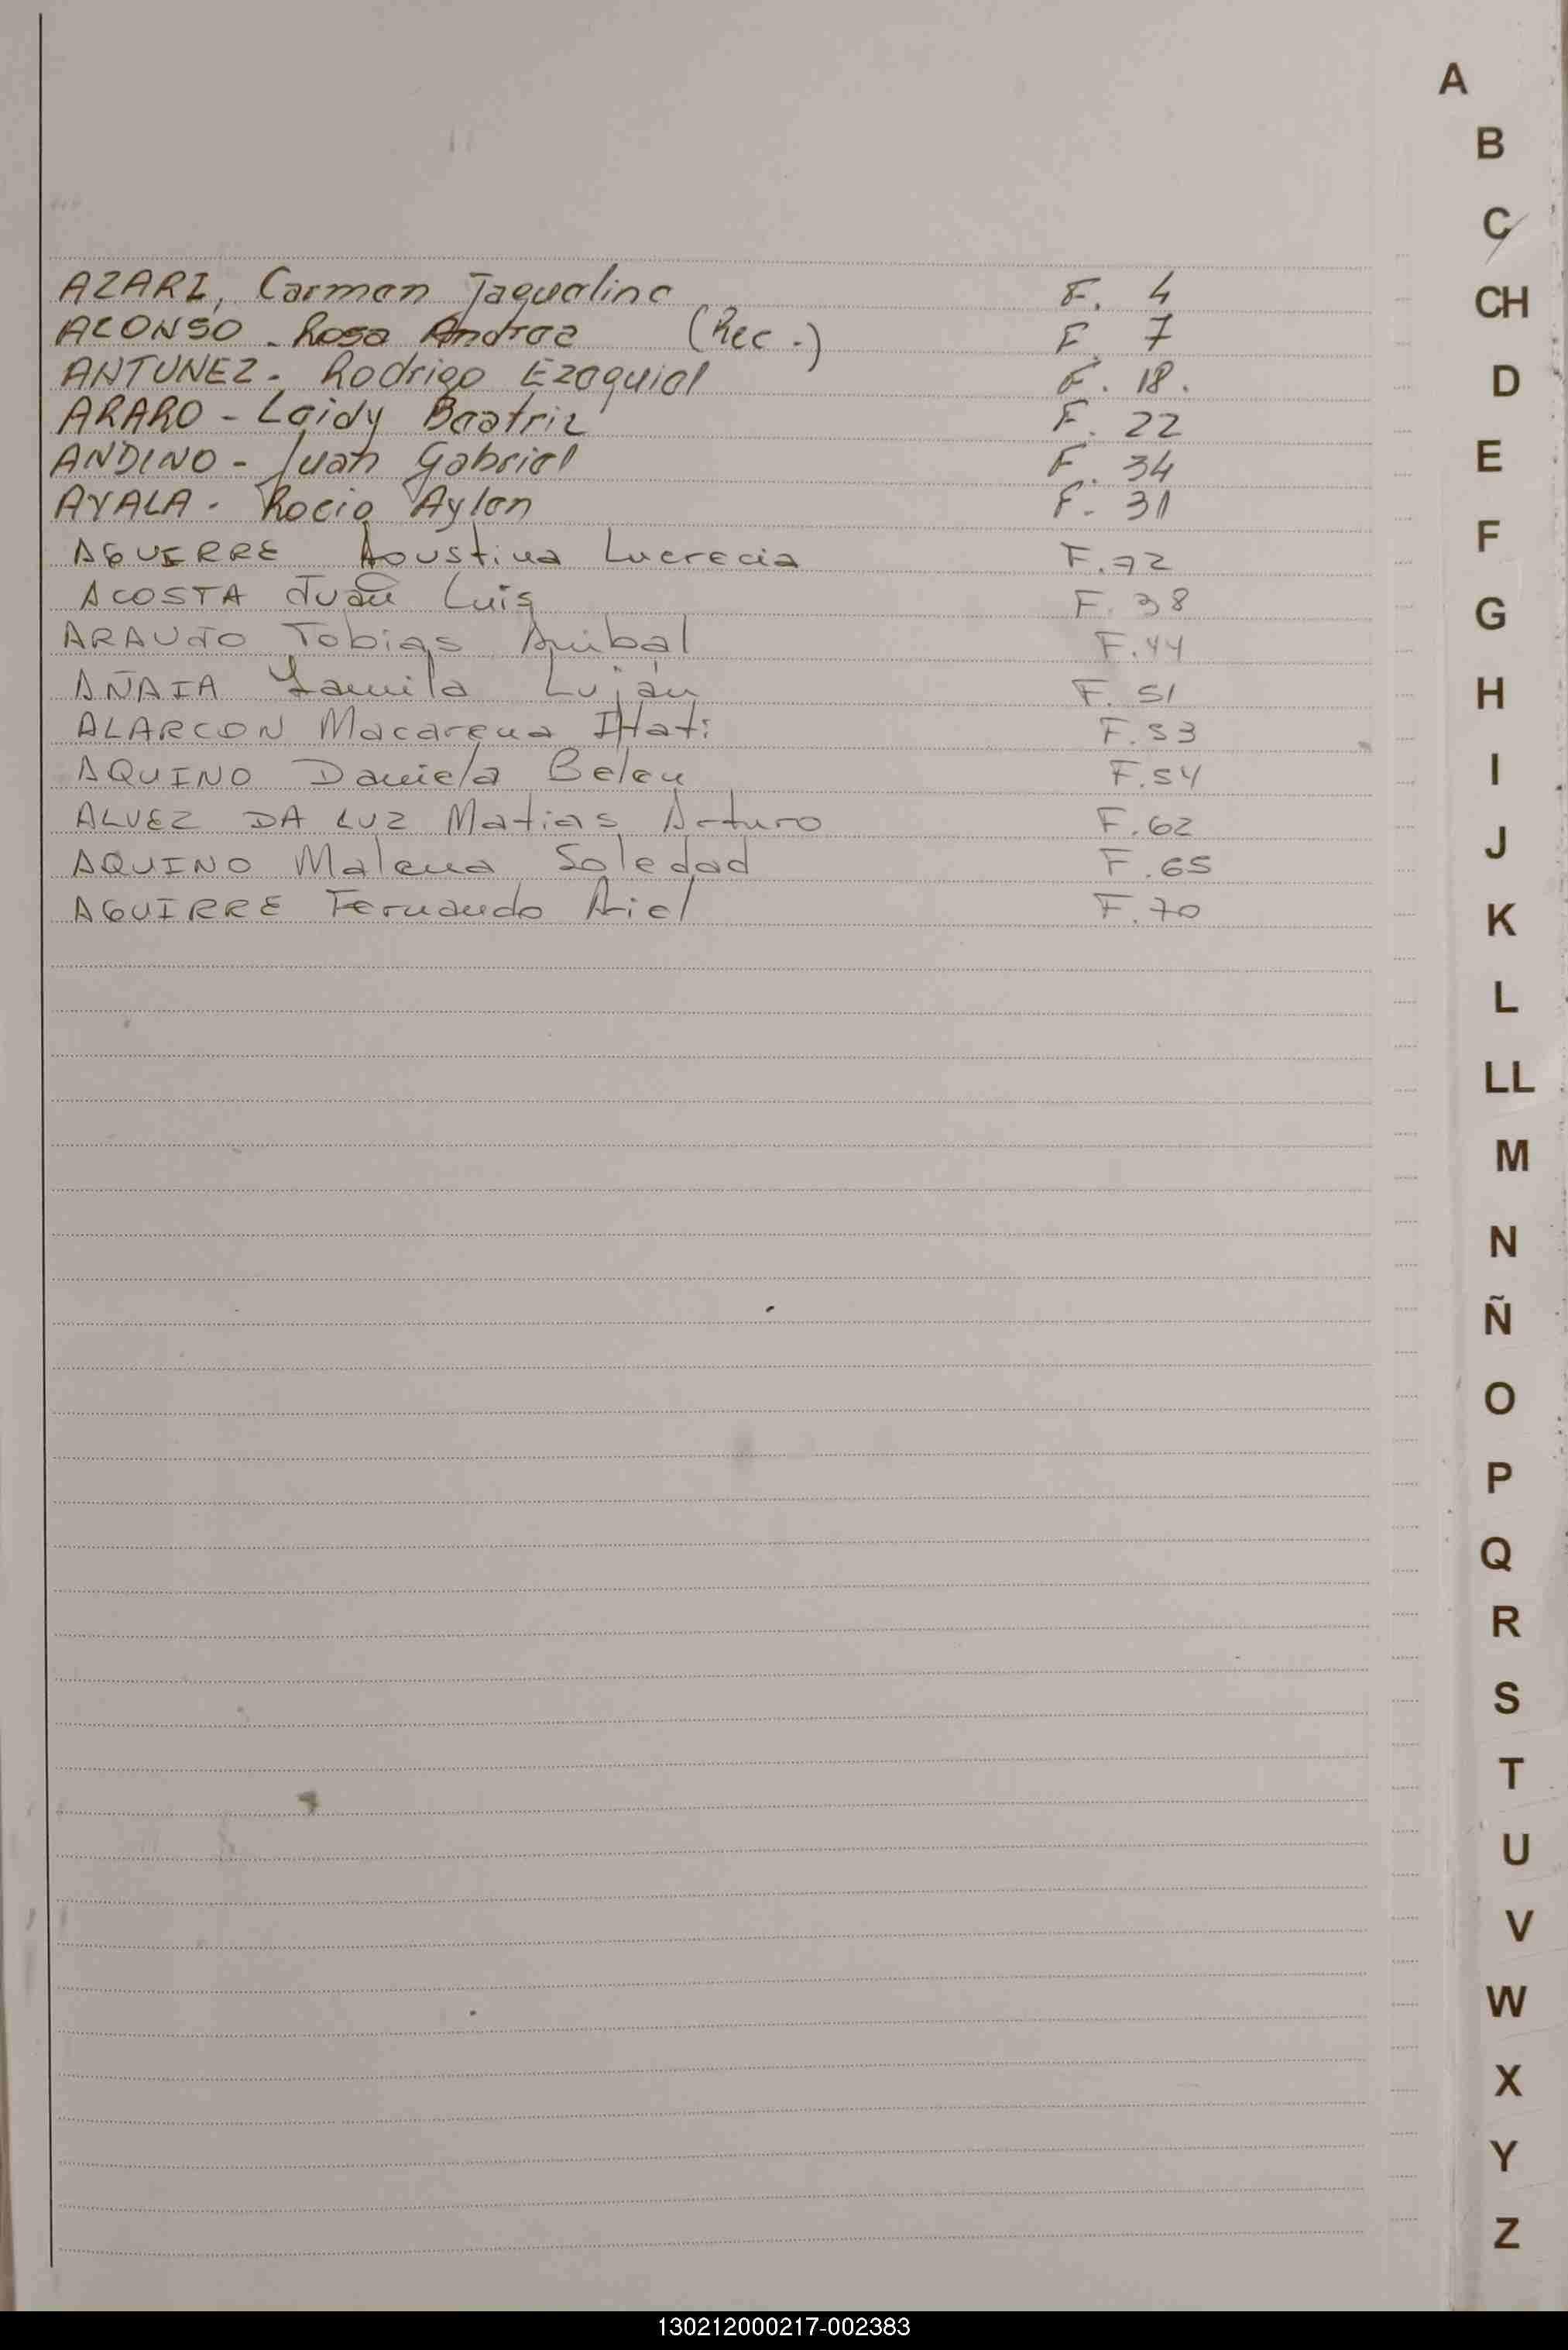 AZARI, Carmen Jaqueline F. 4
ALONSO - Rosa Andrea (Rec.) F. 7
ANTUNEZ - Rodrigo Ezequiel F. 18.
ARARO - Leidy Beatriz F. 22
ANDINO - Juan Gabriel F. 34
AYALA - Rocio Aylen F. 31
AGUERRE Agustina Lucrecia F.72
ACOSTA Juan Luis F. 38
ARAUJO Tobias Anibal F.44
AÑAIA Yamila Luján F. 51
ALARCON Macarena Itati F.53
AQUINO Daniela Belen F.54
ALVEZ DA LUZ Matias Arturo F.62
AQUINO Malena Soledad F.65
AGUIRRE Fernando Ariel F.70
A
B
C
CH
D
E
F
G
H
I
J
K
L
LL
M
N
Ñ
O
P
Q
R
S
T
U
V
W
X
Y
Z
130212000217-002383